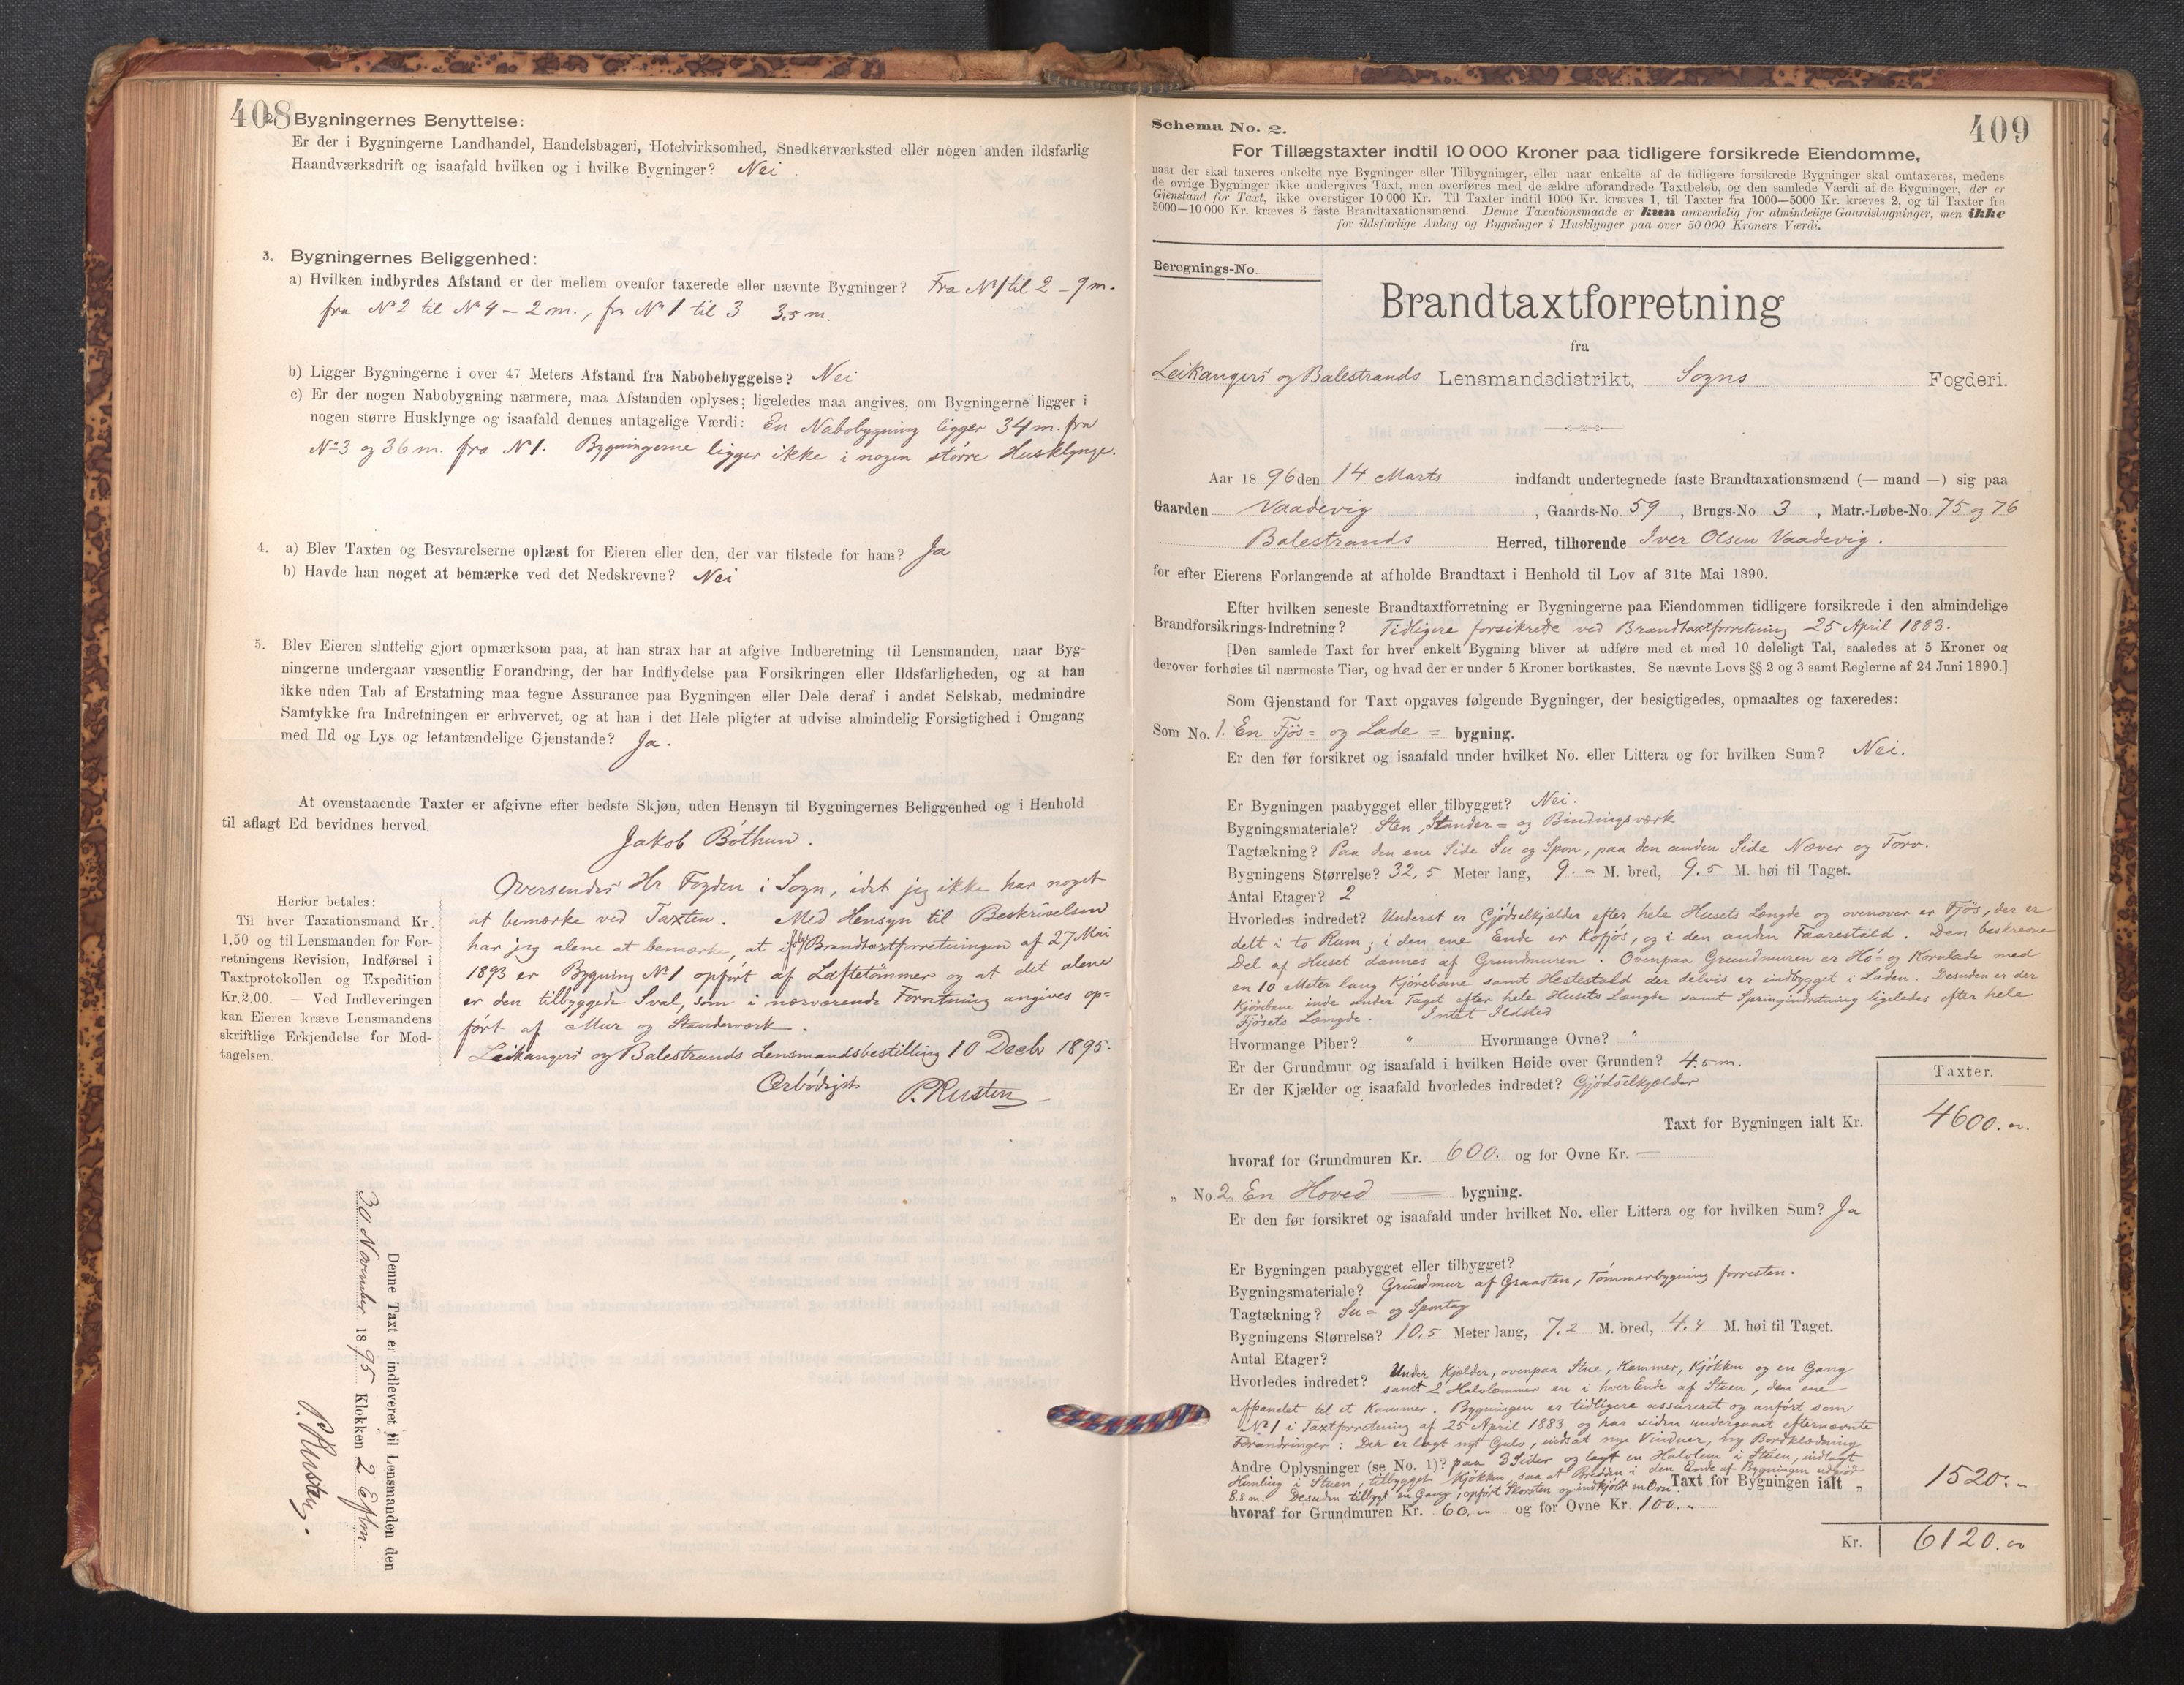 408
2. Bygningernes Benyttelse:
Er der i Bygningerne Landhandel, Handelsbageri, Hotelvirksomhed, Snedkerværksted eller nogen anden ildsfarlig
Haandværksdrift og isaafald hvilken og i hvilke Bygninger? Nei
3. Bygningernes Beliggenhed:
a) Hvilken indbyrdes Afstand er der mellem ovenfor taxerede eller nævnte Bygninger? Fra No 1 til 2 – 9 m.
fra No 2 til No 4 – 2 m., fra No 1 til 3 3,5 m.
b) Ligger Bygningerne i over 47 Meters Afstand fra Nabobebyggelse? Nei
c) Er der nogen Nabobygning nærmere, maa Afstanden oplyses; ligeledes maa angives, om Bygningerne ligger i
nogen større Husklynge og isaafald dennes antagelige Værdi: En Nabobygning ligger 34 m. fra
No 3 og 36 m. fra No 1. Bygningerne ligger ikke i nogen større Husklynge.
4. a) Blev Taxten og Besvarelserne oplæst for Eieren eller den, der var tilstede for ham? Ja
b) Havde han noget at bemærke ved det Nedskrevne? Nei
5. Blev Eieren sluttelig gjort opmærksom paa, at han strax har at afgive Indberetning til Lensmanden, naar Byg-
ningerne undergaar væsentlig Forandring, der har Indflydelse paa Forsikringen eller Ildsfarligheden, og at han
ikke uden Tab af Erstatning maa tegne Assurance paa Bygningen eller Dele deraf i andet Selskab, medmindre
Samtykke fra Indretningen er erhvervet, og at han i det Hele pligter at udvise almindelig Forsigtighed i Omgang
med Ild og Lys og letantændelige Gjenstande? Ja.
At ovenstaaende Taxter er afgivne efter bedste Skjøn, uden Hensyn til Bygningernes Beliggenhed og i Henhold
til aflagt Ed bevidnes herved.
Jakob Bøthun.
Herfor betales:
Til hver Taxationsmand Kr.
1.50 og til Lensmanden for For-
retningens Revision, Indførsel i
Taxtprotokollen og Expedition
Kr. 2.00. — Ved Indleveringen
kan Eieren kræve Lensmandens
skriftlige Erkjendelse for Mod-
tagelsen.
Oversendes Hr Fogden i Sogn, idet jeg ikke har noget
at bemærke ved Taxten. Med Hensyn til Beskrivelsen
har jeg alene at bemærke, at ifølge Brandtaxtforretningen af 27 Mai
1893 er Bygning No 1 opført af Laftetømmer og at det alene
er den tilbyggede Sval, som i nærværende Forretning angives op=
ført af Mur og Standerværk.
Leikangers og Balestrands Lensmandsbestilling 10 Decbr 1895.
Ærbødigst P. Rusten
Denne Taxt er indleveret til Lensmanden den
30 November 1895 Klokken 2 Eftm.
P. Rusten.
409
Schema No. 2.
For Tillægstaxter indtil 10 000 Kroner paa tidligere forsikrede Eiendomme,
naar der skal taxeres enkelte nye Bygninger eller Tilbygninger, eller naar enkelte af de tidligere forsikrede Bygninger skal omtaxeres, medens
de øvrige Bygninger ikke undergives Taxt, men overføres med de ældre uforandrede Taxtbeløb, og den samlede Værdi af de Bygninger, der er
Gjenstand for Taxt, ikke overstiger 10 000 Kr. Til Taxter indtil 1000 Kr. kræves 1, til Taxter fra 1000—5000 Kr. kræves 2, og til Taxter fra
5000—10 000 Kr. kræves 3 faste Brandtaxationsmænd. Denne Taxationsmaade er kun anvendelig for almindelige Gaardsbygninger, men ikke
for ildsfarlige Anlæg og Bygninger i Husklynger paa over 50 000 Kroners Værdi.
Beregnings-No.
Brandtaxtforretning
fra
Leikangers og Balestrands Lensmandsdistrikt, Sogns Fogderi.
Aar 1896 den 14 Marts indfandt undertegnede faste Brandtaxationsmænd (— mand —) sig paa
Gaarden Vaadevig, Gaards-No. 59, Brugs-No. 3, Matr.-Løbe-No. 75 og 76
Balestrands Herred, tilhørende Iver Olsen Vaadevig.
for efter Eierens Forlangende at afholde Brandtaxt i Henhold til Lov af 31te Mai 1890.
Efter hvilken seneste Brandtaxtforretning er Bygningerne paa Eiendommen tidligere forsikrede i den almindelige
Brandforsikrings-Indretning? Tidligere forsikrede ved Brandtaxtforretning 25 April 1883.
[Den samlede Taxt for hver enkelt Bygning bliver at udføre med et med 10 deleligt Tal, saaledes at 5 Kroner og
derover forhøies til nærmeste Tier, og hvad der er under 5 Kroner bortkastes. Se nævnte Lovs §§ 2 og 3 samt Reglerne af 24 Juni 1890.]
Som Gjenstand for Taxt opgaves følgende Bygninger, der besigtigedes, opmaaltes og taxeredes:
Som No. 1. En Fjøs= og Lade= bygning.
Er den før forsikret og isaafald under hvilket No. eller Littera og for hvilken Sum? Nei.
Er Bygningen paabygget eller tilbygget? Nei.
Bygningsmateriale? Sten, Stander= og Bindingsværk
Tagtækning? Paa den ene Side Su og Spon, paa den anden Side Næver og Torv.
Bygningens Størrelse? 32,5 Meter lang, 9. " M. bred, 9.5 M. høi til Taget.
Antal Etager? 2
Hvorledes indredet? Underst er Gjødselkjælder efter hele Husets Længde og ovenover er Fjøs, der er
delt i to Rum; i den ene Ende er Kofjøs, og i den anden Faarestald. Den beskrevne
Del af Huset dannes af Grundmuren. Ovenpaa Grundmuren er Hø= og Kornlade med
en 10 Meter lang Kjørebane samt Hestestald der delvis er indbygget i Laden. Desuden er der
Kjørebane inde under Taget efter hele Husets Længde samt Springindretning ligeledes efter hele
Fjøsets Længde. Intet Ildsted
Hvormange Piber? " Hvormange Ovne? "
Er der Grundmur og isaafald i hvilken Høide over Grunden? 4.5 m.
Er der Kjælder og isaafald hvorledes indredet? Gjødselkjælder
Taxter.
Taxt for Bygningen ialt Kr. 4600. "
hvoraf for Grundmuren Kr. 600. og for Ovne Kr. —
" No. 2. En Hoved= bygning.
Er den før forsikret og isaafald under hvilket No. eller Littera og for hvilken Sum? Ja
Er Bygningen paabygget eller tilbygget?
Bygningsmateriale? Grundmur af Graasten, Tømmerbygning forresten.
Tagtækning? Su= og Spontag
Bygningens Størrelse? 10,5 Meter lang, 7.2 M. bred, 4.4 M. høi til Taget.
Antal Etager?
Hvorledes indredet? Under Kjælder, ovenpaa Stue, Kammer, Kjøkken og en Gang
samt 2 Halvlemmer en i hver Ende af Stuen, den ene
afpanelet til et Kammer. Bygningen er tidligere assureret og anført som
No 1 i Taxtforretning af 25 April 1883 og har siden undergaaet efternævnte
Forandringer: Der er lagt nyt Gulv, indsat nye Vinduer, ny Bordklædning
Andre Oplysninger (se No. 1)? paa 3 Sider og lagt en Halvlem i Stuen, indlagt
Himling i Stuen, tilbygget Kjøkken, saa at Bredden i den Ende af Bygningen udgjør
8.8 m. Desuden tilbygt en Gang, opført Skorsten og indkjøbt en Ovn. Taxt for Bygningen ialt " 1520. "
hvoraf for Grundmuren Kr. 60. " og for Ovne Kr. 100. "
Kr. 6120. "